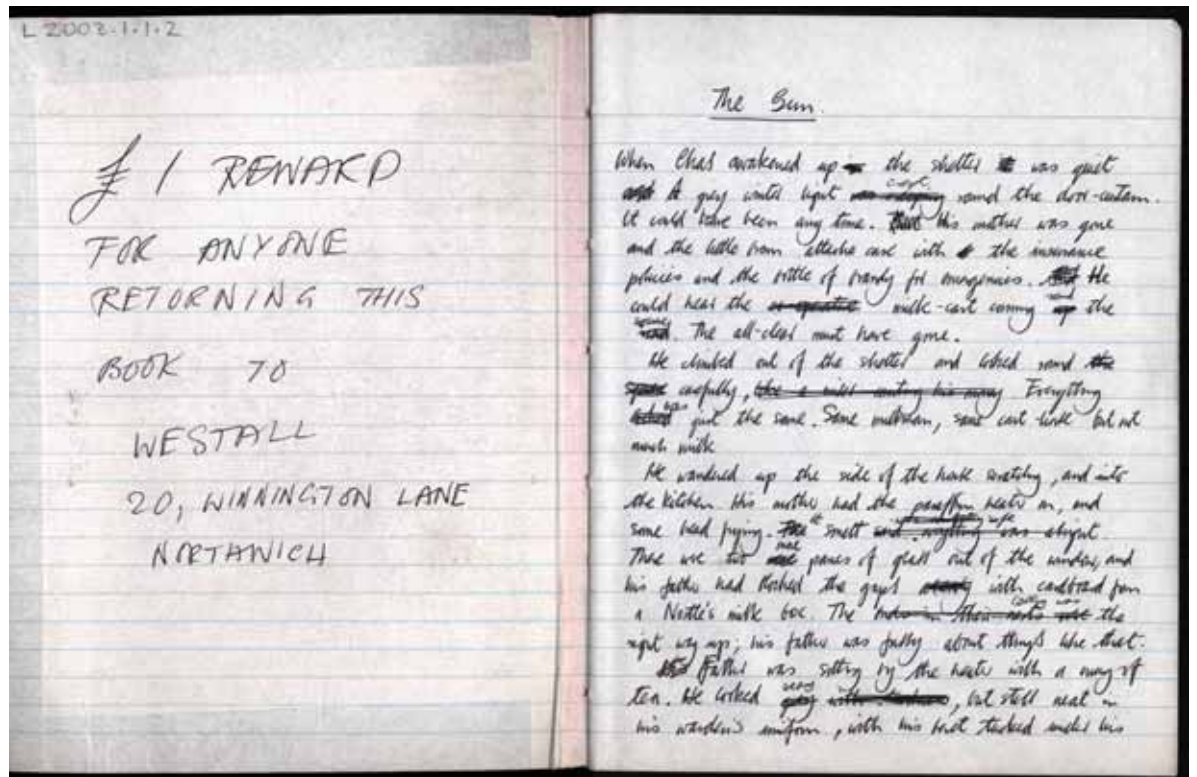 L 2002.1.1.2
£ 1 REWARD
FOR ANYONE
RETURNING THIS
BOOK TO
WESTALL
20, WINNINGTON LANE
NORTHWICH
The Gun.
When Chas awakened up the shelter was quiet
A grey winter light crept round the door-curtain.
It could have been any time. His mother was gone
and the little brown attache case with the insurance
policies and the bottle of brandy for emergencies. He
could hear the milk-cart coming round the
. The all-clear must have gone.
He climbed out of the shelter and looked round the
carefully, Everything
was just the same. Same milkman, same cart horse but not
much milk
He wandered up the side of the house scratching, and into
the kitchen. His mother had the paraffin heater on, and
some bread frying. The smelt safe
There were two more panes of glass out of the window, and
his father had blocked the gaps with cardboard from
a Nestle's milk box. The was the
right way up; his father was fussy about things like that.
Father was sitting by the heater with a mug of
tea. He looked weary, but still neat in
his warden's uniform, with his beret tucked under his